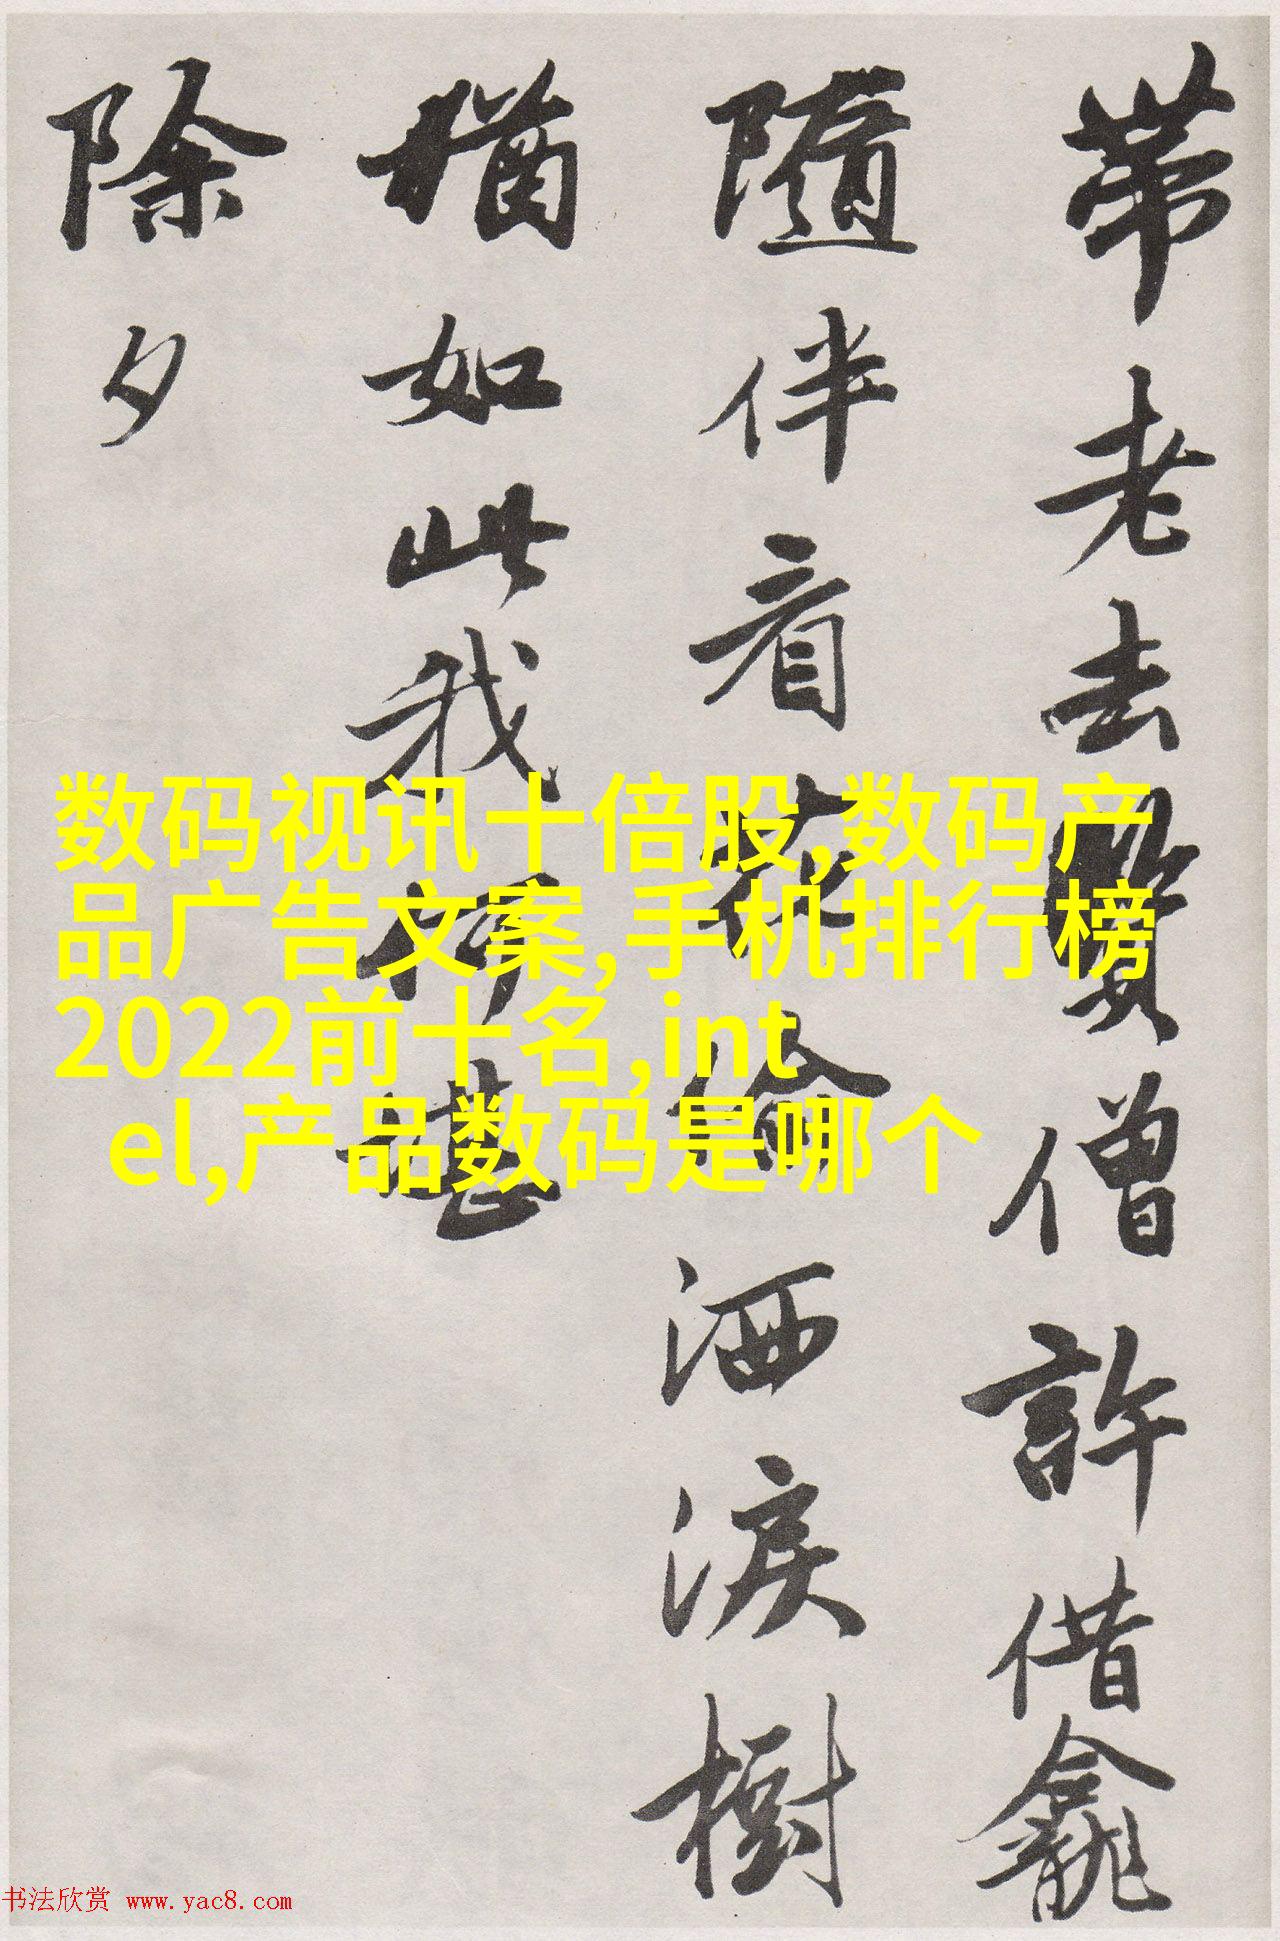 帶老去賢僧許借龕
隨伴看花偷洒淚樹
猶如此我何堪
除夕
数码视讯十倍股,数码产
品广告文案,手机排行榜
2022前十名,int
el,产品数码是哪个
书法欣赏 www.yac8.com